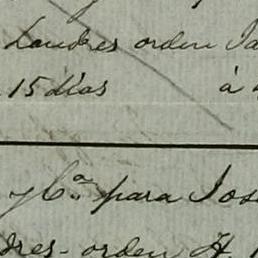 Londres orden Ja
15 días á
y Cª para José
dres - orden H.